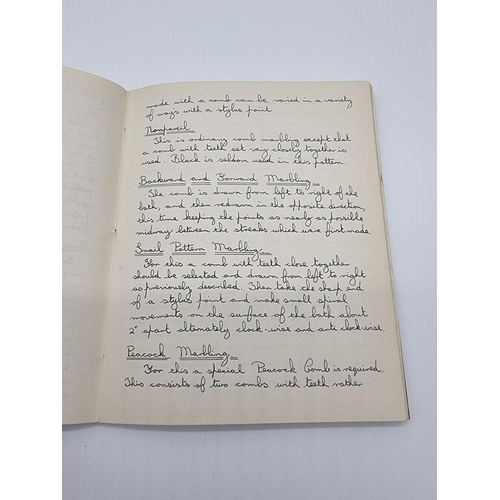 made with a comb can be varied in a variety
of ways with a stylus point.
Nonpareil.
This is ordinary comb marbling except that
a comb with teeth set very closely together is
used. Black is seldom used in this pattern.
Backward and Forward Marbling.
The comb is drawn from left to right of the
bath, and then redrawn in the opposite direction,
this time keeping the points as nearly as possible
midway between the streaks which were first made.
Snail Pattern Marbling.
For this a comb with teeth close together
should be selected and drawn from left to right
as previously described. Then take the sharp end
of a stylus point and make small spiral
movements on the surface of the bath about
2" apart alternately clock-wise and anti clock-wise.
Peacock Marbling.
For this a special Peacock Comb is required.
This consists of two combs with teeth rather